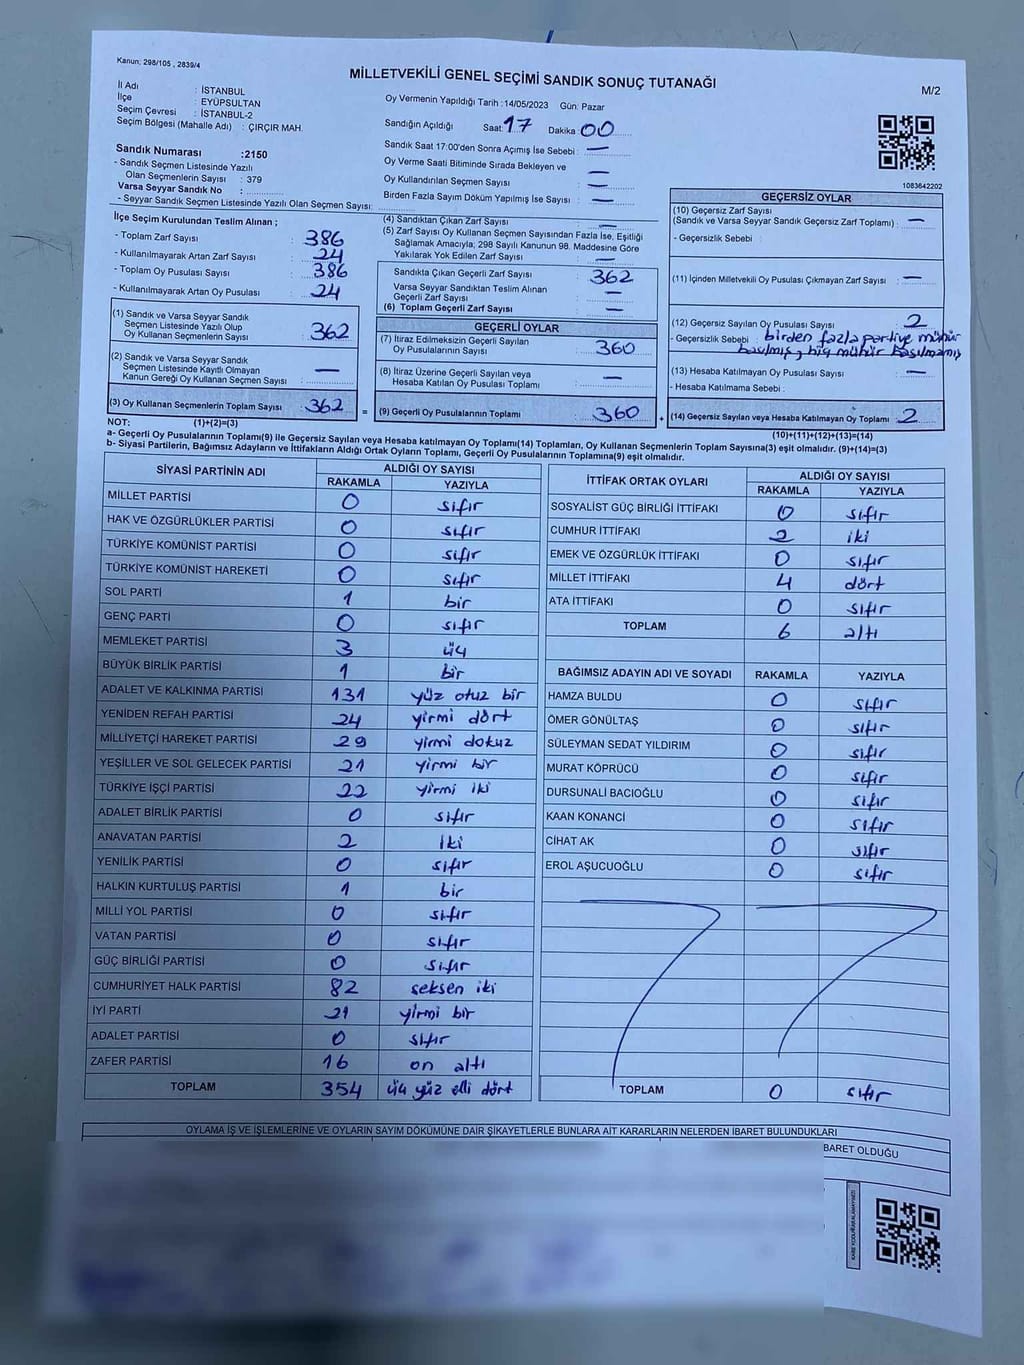 Kanun: 298/105 , 2839/4
MİLLETVEKİLİ GENEL SEÇİMİ SANDIK SONUÇ TUTANAĞI
M/2
İl Adı : İSTANBUL
İlçe : EYÜPSULTAN
Seçim Çevresi : İSTANBUL-2
Seçim Bölgesi (Mahalle Adı) : ÇIRÇIR MAH.
Oy Vermenin Yapıldığı Tarih :14/05/2023 Gün: Pazar
Sandığın Açıldığı Saat: 17 Dakika: 00
Sandık Saat 17:00'den Sonra Açımış İse Sebebi : —
Oy Verme Saati Bitiminde Sırada Bekleyen ve
Oy Kullandırılan Seçmen Sayısı : —
Birden Fazla Sayım Döküm Yapılmış İse Sayısı : —
Sandık Numarası :2150
- Sandık Seçmen Listesinde Yazılı
Olan Seçmenlerin Sayısı : 379
Varsa Seyyar Sandık No :
- Seyyar Sandık Seçmen Listesinde Yazılı Olan Seçmen Sayısı:
1083642202
İlçe Seçim Kurulundan Teslim Alınan ;
- Toplam Zarf Sayısı : 386
- Kullanılmayarak Artan Zarf Sayısı : 24
- Toplam Oy Pusulası Sayısı : 386
- Kullanılmayarak Artan Oy Pusulası : 24
(1) Sandık ve Varsa Seyyar Sandık
Seçmen Listesinde Yazılı Olup
Oy Kullanan Seçmenlerin Sayısı : 362
(2) Sandık ve Varsa Seyyar Sandık
Seçmen Listesinde Kayıtlı Olmayan
Kanun Gereği Oy Kullanan Seçmen Sayısı : —
(3) Oy Kullanan Seçmenlerin Toplam Sayısı : 362 =
(4) Sandıktan Çıkan Zarf Sayısı : —
(5) Zarf Sayısı Oy Kullanan Seçmen Sayısından Fazla İse, Eşitliği
Sağlamak Amacıyla; 298 Sayılı Kanunun 98. Maddesine Göre
Yakılarak Yok Edilen Zarf Sayısı : —
Sandıkta Çıkan Geçerli Zarf Sayısı : 362
Varsa Seyyar Sandıktan Teslim Alınan
Geçerli Zarf Sayısı : —
(6) Toplam Geçerli Zarf Sayısı : —
GEÇERLİ OYLAR
(7) İtiraz Edilmeksizin Geçerli Sayılan
Oy Pusulalarının Sayısı : 360
(8) İtiraz Üzerine Geçerli Sayılan veya
Hesaba Katılan Oy Pusulası Toplamı : —
(9) Geçerli Oy Pusulalarının Toplamı : 360 +
GEÇERSİZ OYLAR
(10) Geçersiz Zarf Sayısı
(Sandık ve Varsa Seyyar Sandık Geçersiz Zarf Toplamı) : —
- Geçersizlik Sebebi :
(11) İçinden Milletvekili Oy Pusulası Çıkmayan Zarf Sayısı : —
(12) Geçersiz Sayılan Oy Pusulası Sayısı : 2
- Geçersizlik Sebebi : birden fazla partiye mühür
basılmış, hiç mühür basılmamış
(13) Hesaba Katılmayan Oy Pusulası Sayısı : —
- Hesaba Katılmama Sebebi :
(14) Geçersiz Sayılan veya Hesaba Katılmayan Oy Toplamı : 2
NOT: (1)+(2)=(3)
(10)+(11)+(12)+(13)=(14)
a- Geçerli Oy Pusulalarının Toplamı(9) ile Geçersiz Sayılan veya Hesaba katılmayan Oy Toplamı(14) Toplamları, Oy Kullanan Seçmenlerin Toplam Sayısına(3) eşit olmalıdır. (9)+(14)=(3)
b- Siyasi Partilerin, Bağımsız Adayların ve İttifakların Aldığı Ortak Oyların Toplamı, Geçerli Oy Pusulalarının Toplamına(9) eşit olmalıdır.
SİYASİ PARTİNİN ADI ALDIĞI OY SAYISI
RAKAMLA YAZIYLA
MİLLET PARTİSİ 0 sıfır
HAK VE ÖZGÜRLÜKLER PARTİSİ 0 sıfır
TÜRKİYE KOMÜNİST PARTİSİ 0 sıfır
TÜRKİYE KOMÜNİST HAREKETİ 0 sıfır
SOL PARTİ 1 bir
GENÇ PARTİ 0 sıfır
MEMLEKET PARTİSİ 3 üç
BÜYÜK BİRLİK PARTİSİ 1 bir
ADALET VE KALKINMA PARTİSİ 131 yüz otuz bir
YENİDEN REFAH PARTİSİ 24 yirmi dört
MİLLİYETÇİ HAREKET PARTİSİ 29 yirmi dokuz
YEŞİLLER VE SOL GELECEK PARTİSİ 21 yirmi bir
TÜRKİYE İŞÇİ PARTİSİ 22 yirmi iki
ADALET BİRLİK PARTİSİ 0 sıfır
ANAVATAN PARTİSİ 2 iki
YENİLİK PARTİSİ 0 sıfır
HALKIN KURTULUŞ PARTİSİ 1 bir
MİLLİ YOL PARTİSİ 0 sıfır
VATAN PARTİSİ 0 sıfır
GÜÇ BİRLİĞİ PARTİSİ 0 sıfır
CUMHURİYET HALK PARTİSİ 82 seksen iki
İYİ PARTİ 21 yirmi bir
ADALET PARTİSİ 0 sıfır
ZAFER PARTİSİ 16 on altı
TOPLAM 354 üç yüz elli dört
İTTİFAK ORTAK OYLARI ALDIĞI OY SAYISI
RAKAMLA YAZIYLA
SOSYALİST GÜÇ BİRLİĞİ İTTİFAKI 0 sıfır
CUMHUR İTTİFAKI 2 iki
EMEK VE ÖZGÜRLÜK İTTİFAKI 0 sıfır
MİLLET İTTİFAKI 4 dört
ATA İTTİFAKI 0 sıfır
TOPLAM 6 altı
BAĞIMSIZ ADAYIN ADI VE SOYADI RAKAMLA YAZIYLA
HAMZA BULDU 0 sıfır
ÖMER GÖNÜLTAŞ 0 sıfır
SÜLEYMAN SEDAT YILDIRIM 0 sıfır
MURAT KÖPRÜCÜ 0 sıfır
DURSUNALİ BACIOĞLU 0 sıfır
KAAN KONANCİ 0 sıfır
CİHAT AK 0 sıfır
EROL AŞUCUOĞLU 0 sıfır
TOPLAM 0 sıfır
OYLAMA İŞ VE İŞLEMLERİNE VE OYLARIN SAYIM DÖKÜMÜNE DAİR ŞİKAYETLERLE BUNLARA AİT KARARLARIN NELERDEN İBARET BULUNDUKLARI
BARET OLDUĞU